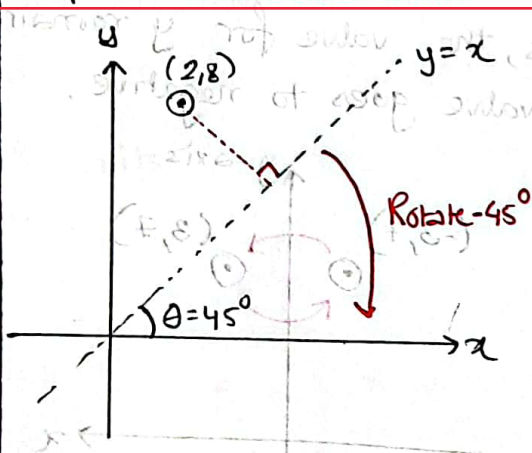 y
(2,8)
y=x
Rotate-45°
θ=45°
x